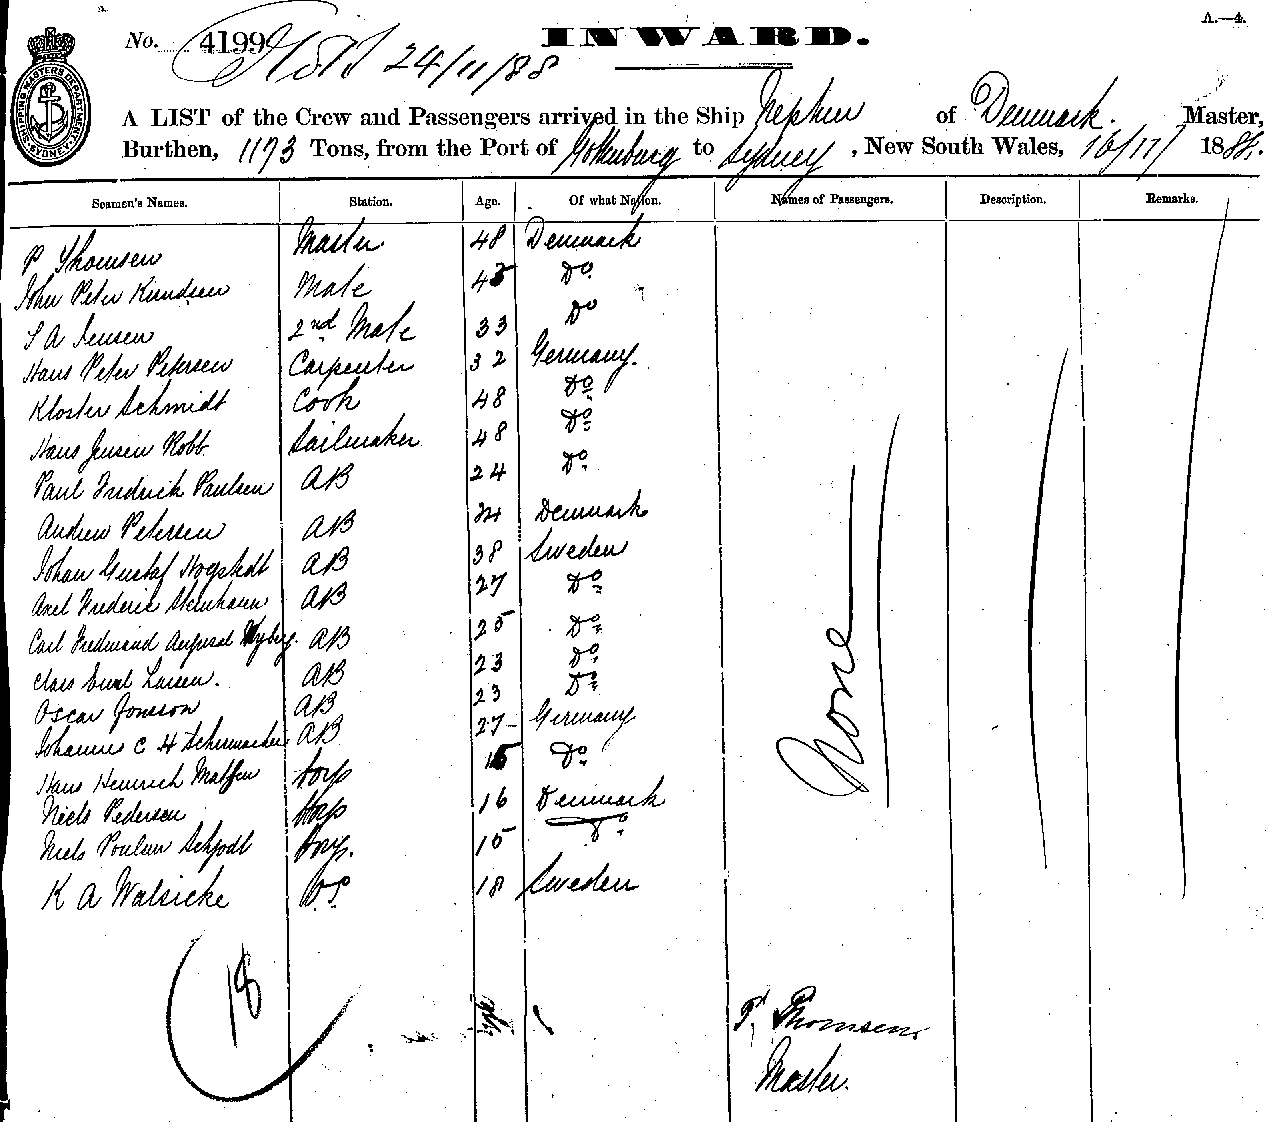 A.—4.
No. 4199 24/11/88
INWARD.
SHIPPING MASTER'S DEPARTMENT SYDNEY
A LIST of the Crew and Passengers arrived in the Ship of Denmark. Master,
Burthen, 1173 Tons, from the Port of Gothenburg to Sydney, New South Wales, 16/11/ 1888.
Seamen's Names. Station. Age. Of what Nation. Names of Passengers. Description. Remarks.
P Thomsen Master 48 Denmark
John Peter Knudsen Mate 43 Do
S A Jensen 2nd Mate 33 Do
Hans Peter Petersen Carpenter 32 Germany.
Kloster Schmidt Cook 48 Do
Hans Jensen Robb Sailmaker 48 Do
Paul Frederik Paulsen AB 24 Do
Andrew Petersen AB 24 Denmark
Johan Gustaf AB 38 Sweden
Axel Frederic AB 27 Do
Carl Ferdinand August AB 25 Do
Claes Emil Larsen. AB 23 Do
Oscar Jonsson AB 23 Do
Johannes C H AB 27 Germany
Hans Heinrich Boy 15 Do
Niels Pedersen Boy 16 Denmark
Niels Poulsen Boy. 15 Do
K A Walsicke OS 18 Sweden
None
18
P Thomsen.
Master.